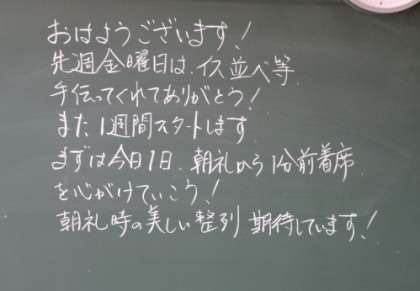 おはようございます!
先週金曜日は、イス並べ等
手伝ってくれてありがとう!
また1週間スタートします
まずは今日1日、朝礼から1分前着席
を心がけていこう!
朝礼時の美しい整列期待しています!